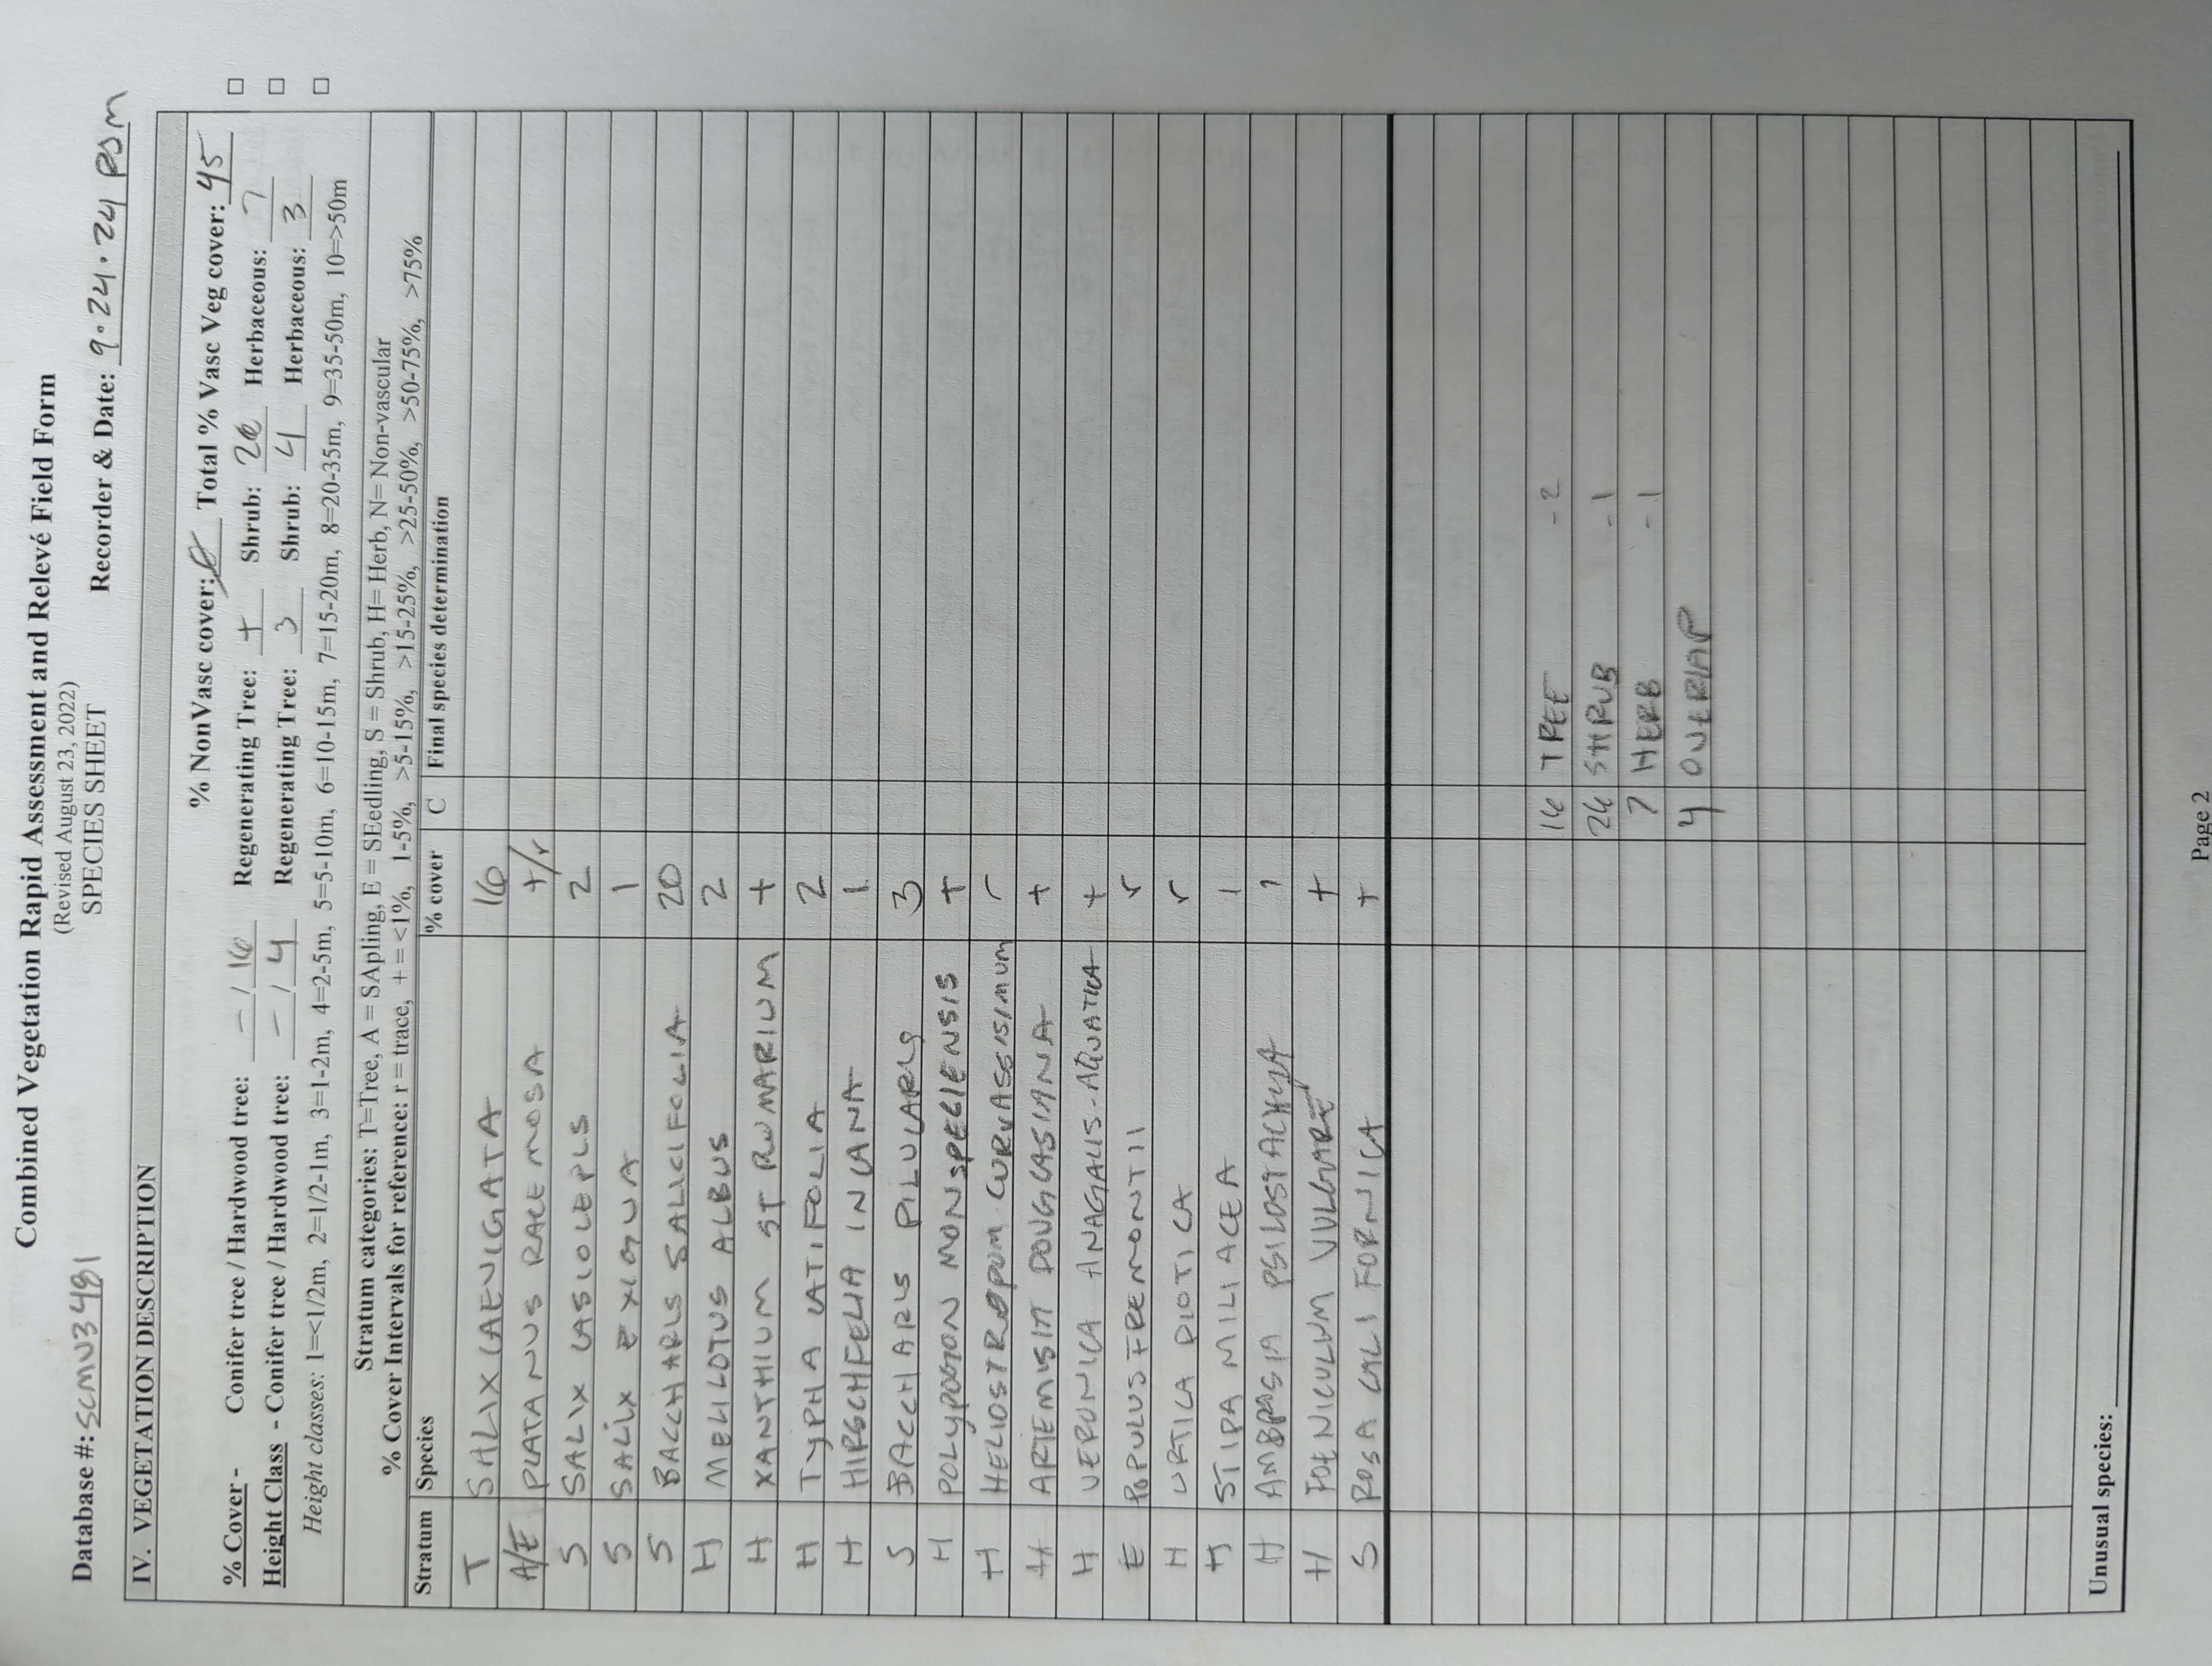 Combined Vegetation Rapid Assessment and Relevé Field Form
(Revised August 23, 2022)
SPECIES SHEET
Database #: SCMU3481 Recorder & Date: 9.24.24 RSM
IV. VEGETATION DESCRIPTION
% NonVasc cover: Total % Vasc Veg cover: 45
% Cover - Conifer tree / Hardwood tree: – / 16 Regenerating Tree: + Shrub: 26 Herbaceous: 7 □
Height Class - Conifer tree / Hardwood tree: – / 4 Regenerating Tree: 3 Shrub: 4 Herbaceous: 3 □
Height classes: 1=<1/2m, 2=1/2-1m, 3=1-2m, 4=2-5m, 5=5-10m, 6=10-15m, 7=15-20m, 8=20-35m, 9=35-50m, 10=>50m □
Stratum categories: T=Tree, A = SApling, E = SEedling, S = Shrub, H= Herb, N= Non-vascular
% Cover Intervals for reference: r = trace, + = <1%, 1-5%, >5-15%, >15-25%, >25-50%, >50-75%, >75%
Stratum Species % cover C Final species determination
T SALIX LAEVIGATA 16
A/E PLATANUS RACEMOSA +/r
S SALIX LASIOLEPIS 2
S SALIX EXIGUA 1
S BACCHARIS SALICIFOLIA 20
H MELILOTUS ALBUS 2
H XANTHIUM STRUMARIUM +
H TYPHA LATIFOLIA 2
H HIRSCHFELIA INCANA 1
S BACCHARIS PILULARIS 3
H POLYPOGON MONSPELIENSIS +
H HELIOSTROPUM CURVASSISIMUM r
H ARTEMISIA DOUGLASIANA +
H VERONICA ANAGALIS-AQUATICA +
E POPULUS FREMONTII r
H URTICA DIOTICA r
H STIPA MILIACEA 1
H AMBROSIA PSILOSTACHYA 1
H FOENICULUM VULGARE +
S ROSA CALIFORNICA +
16 TREE -2
26 SHRUB -1
7 HERB -1
4 OVERLAP
Unusual species:
Page 2